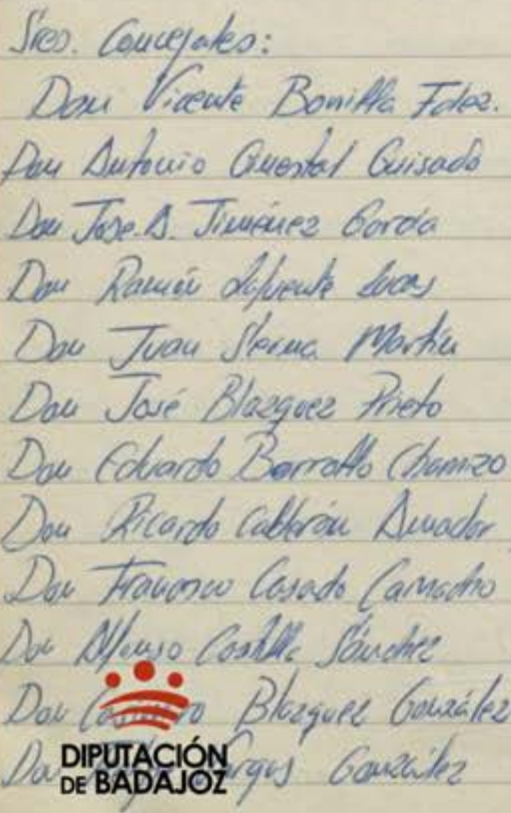 Sres. Concejales:
Don Vicente Bonilla Fdez.
Don Antonio Guisado
Don Jose.A. Jiménez García
Don Ramón Lafuente Lucas
Don Juan Serma Martín
Don José Blazquez Prieto
Don Eduardo Barrallo Chamizo
Don Ricardo Calderón Amador
Don Francisco Casado Camacho
Don Alfonso Castillo Sánchez
Don Blazquez González
Don González
DIPUTACIÓN
DE BADAJOZ